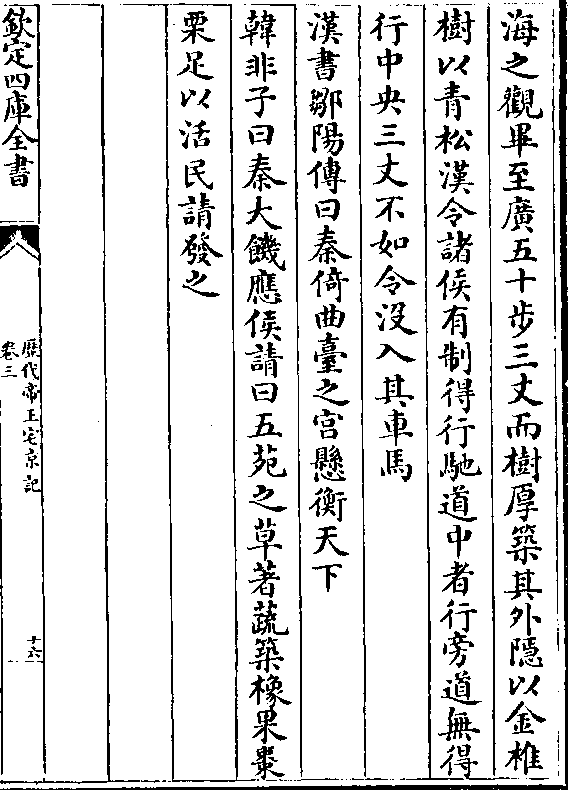 海之觀畢至廣五十步三丈而樹厚築其外隱以金椎
樹以青松漢令諸侯有制得行馳道中者行旁道無得
行中央三丈不如令沒入其車馬
漢書鄒陽傳曰秦倚曲臺之宮懸衡天下
韓非子曰秦大饑應侯請曰五苑之草著蔬築橡果棗
栗足以活民請發之
欽定四庫全書
歷代帝王宅京記
卷三
十六